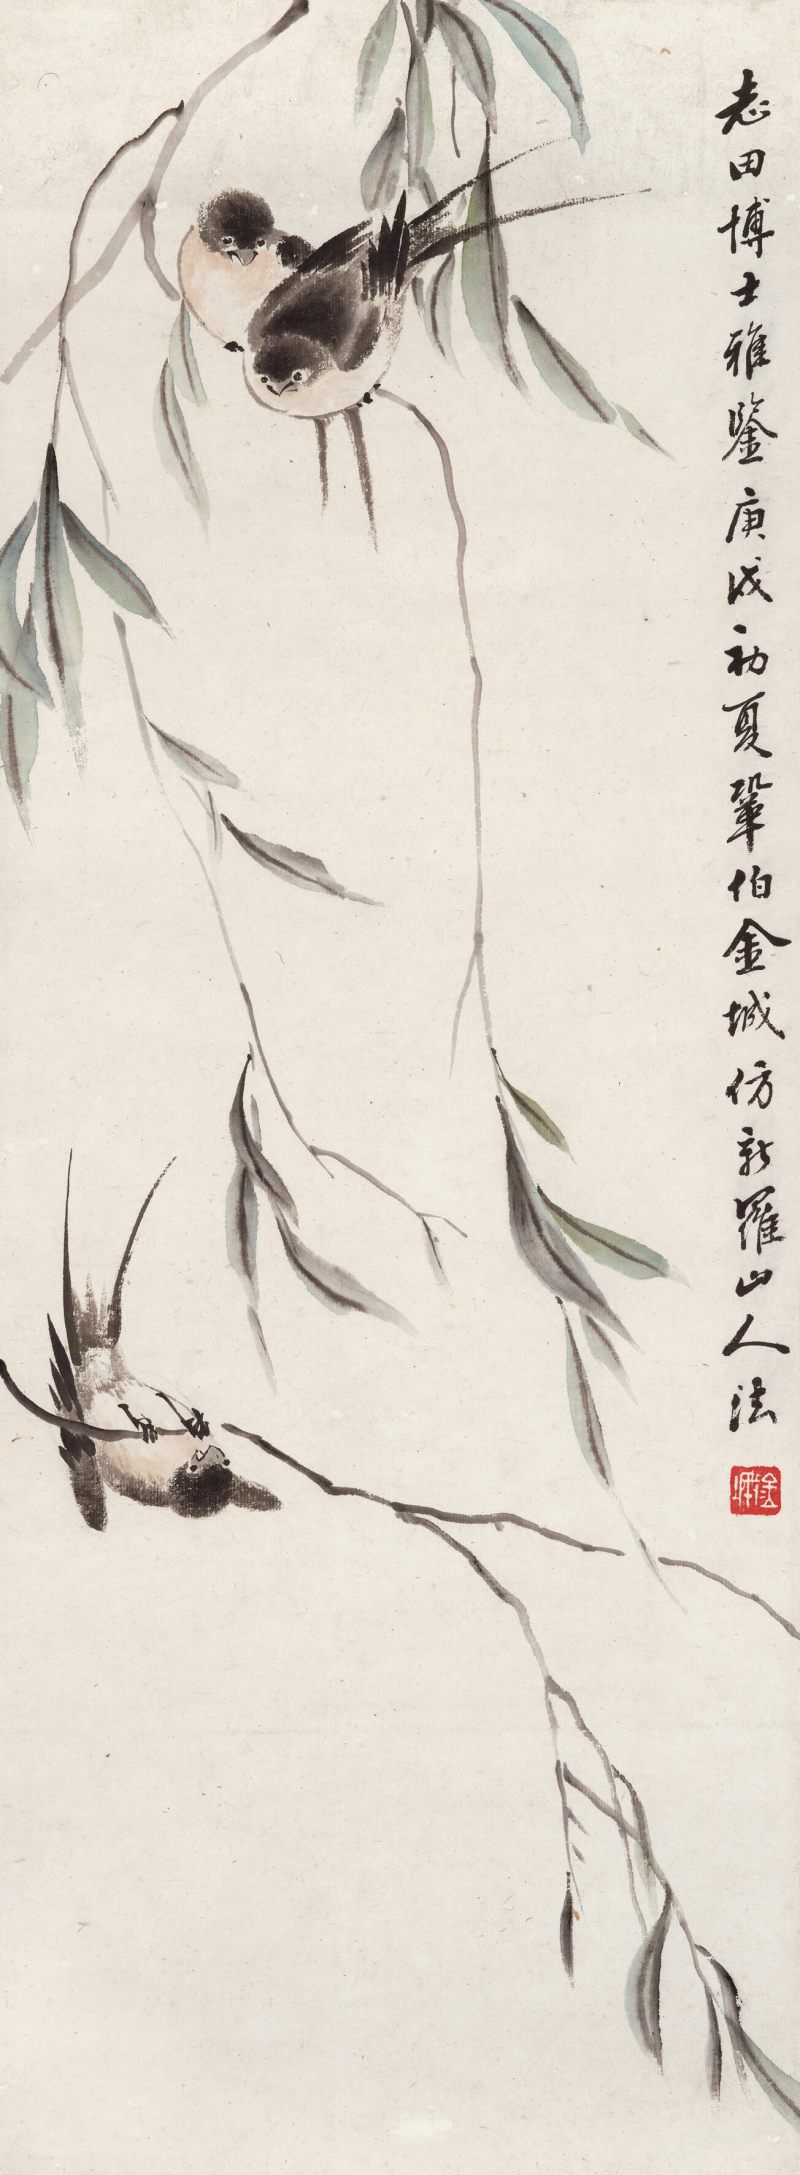 志田博士雅鑒庚戌初夏鞏伯金城仿新羅山人法